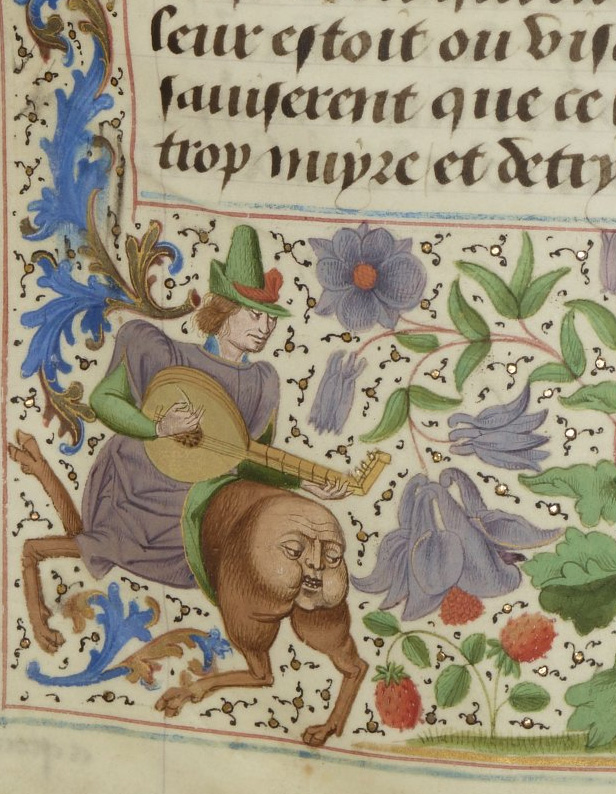 leur estoit ou vis
sauiserent que ce
trop nuyre et detry